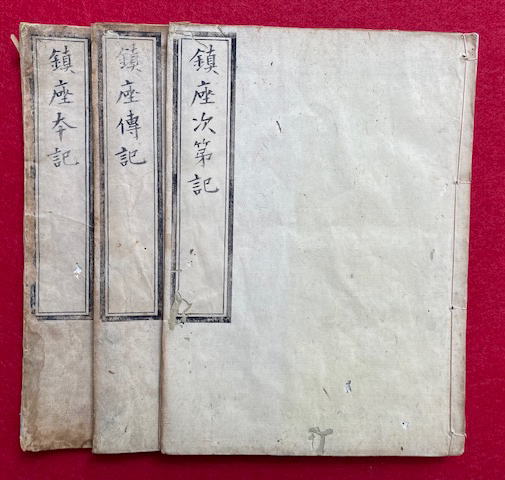 鎮座次第記
鎮座傳記
鎮座本記